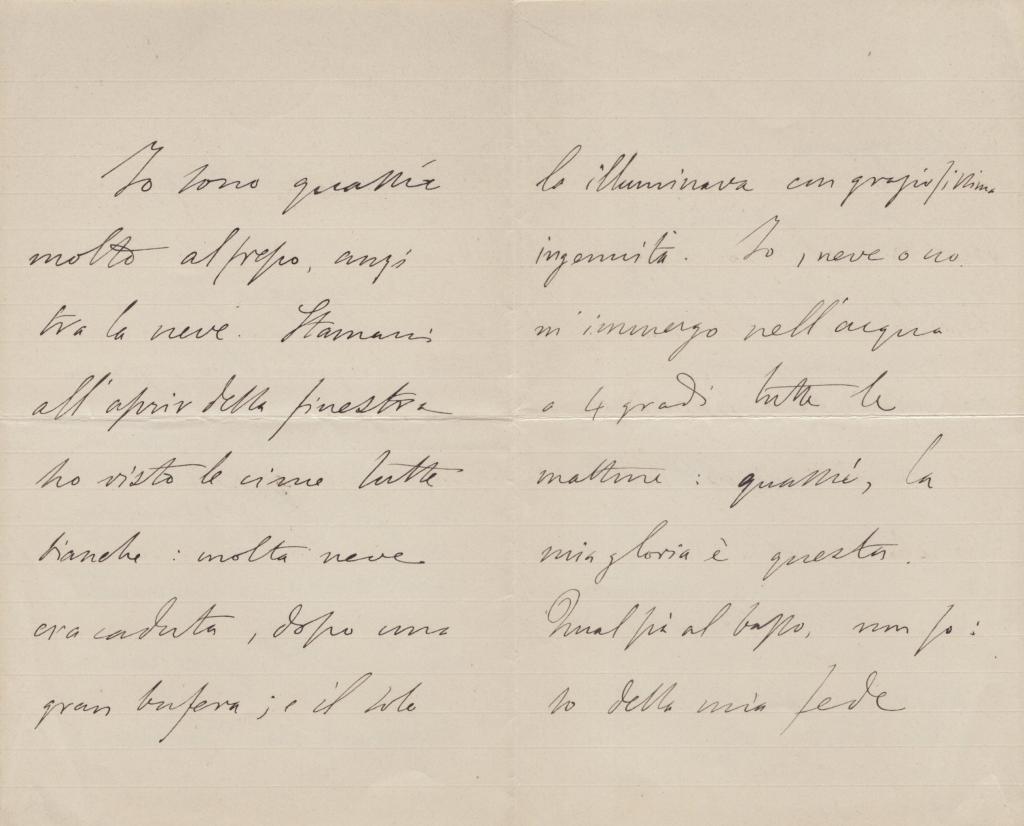 Io sono quassù
molto al fresco, anzi
tra la neve. Stamani
all'aprir della finestra
ho visto le cime tutte
bianche: molta neve
era caduta, dopo una
gran bufera; e il sole
le illuminava con graziosissima
ingenuità. Io, neve o no
m'immergo nell'acqua
a 4 gradi tutte le
mattine: quassù, la
mia gloria è questa.
Qual sia al basso, non so:
so della mia fede